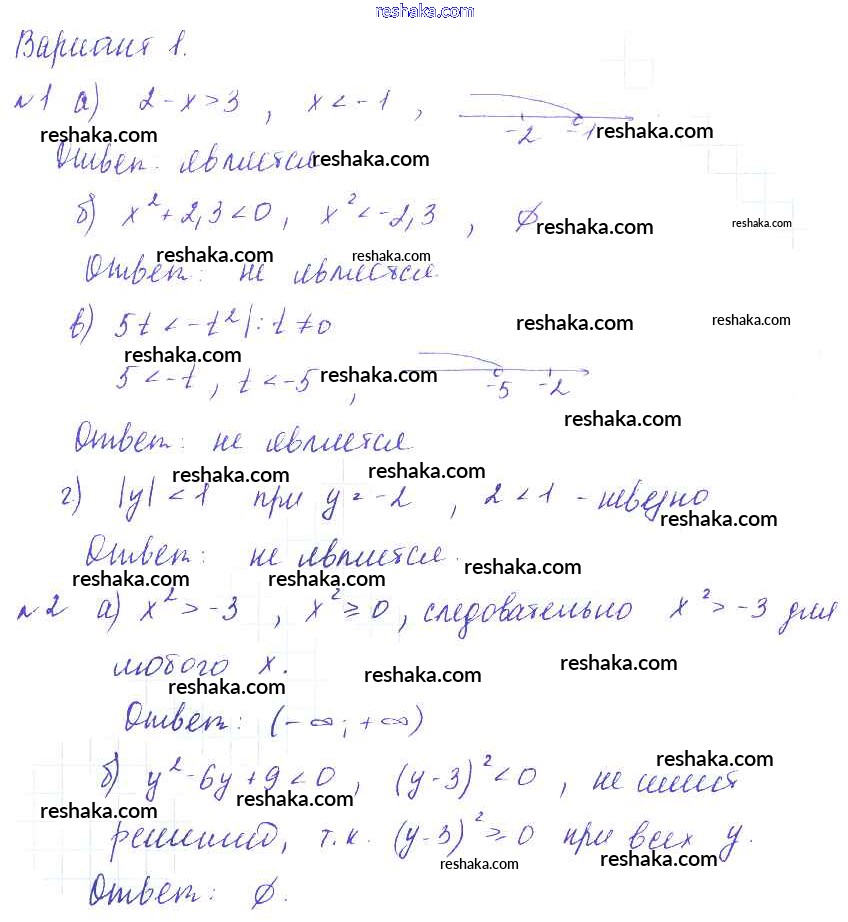 reshaka.com
Вариант 1.
№1 а) 2-x>3 , x<-1 , -2 -1 reshaka.com
reshaka.com
Ответ: является reshaka.com
б) x²+2,3<0, x²<-2,3 , ∅ reshaka.com reshaka.com
reshaka.com reshaka.com
Ответ: не является
в) 5t<-t² |: t≠0 reshaka.com reshaka.com
reshaka.com
5<-t, t<-5 , reshaka.com -5 -2
reshaka.com
Ответ: не является
reshaka.com reshaka.com
г) |y|<1 при y=-2 , 2<1 - неверно
reshaka.com
Ответ: не является.
reshaka.com reshaka.com reshaka.com
№2 а) x²>-3 , x²≥0, следовательно x²>-3 для
любого x.
reshaka.com reshaka.com reshaka.com
Ответ: (-∞;+∞)
reshaka.com
б) y²-6y+9<0, (y-3)²<0 , не имеет
reshaka.com reshaka.com reshaka.com
решений, т.к. (y-3)²≥0 при всех y.
reshaka.com reshaka.com
Ответ: ∅.